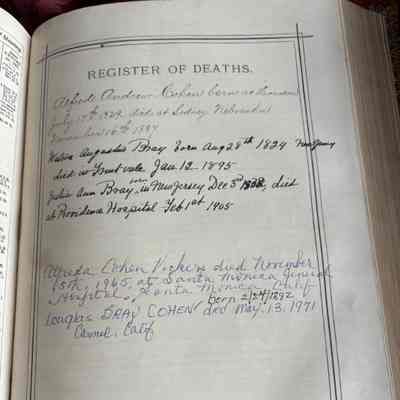 REGISTER OF DEATHS.
Alfred Andrew Cohen born at London
July 17th 1829 died at Sidney Nebraska
November 16th 1887
Watson Augustus Bray born Aug 28th 1824 New Jersey
died at Fruitvale Jan 12 1895
Julia Ann Bray, born in New Jersey Dec 3rd, died
at Providence Hospital Feb 1st 1905
Alfreda Cohen Vickers died November
15th, 1965, at Santa Monica
Hospital, Santa Monica, Calif
born 2/24/1892
Douglas BRAY COHEN died May. 13. 1971
Carmel, Calif